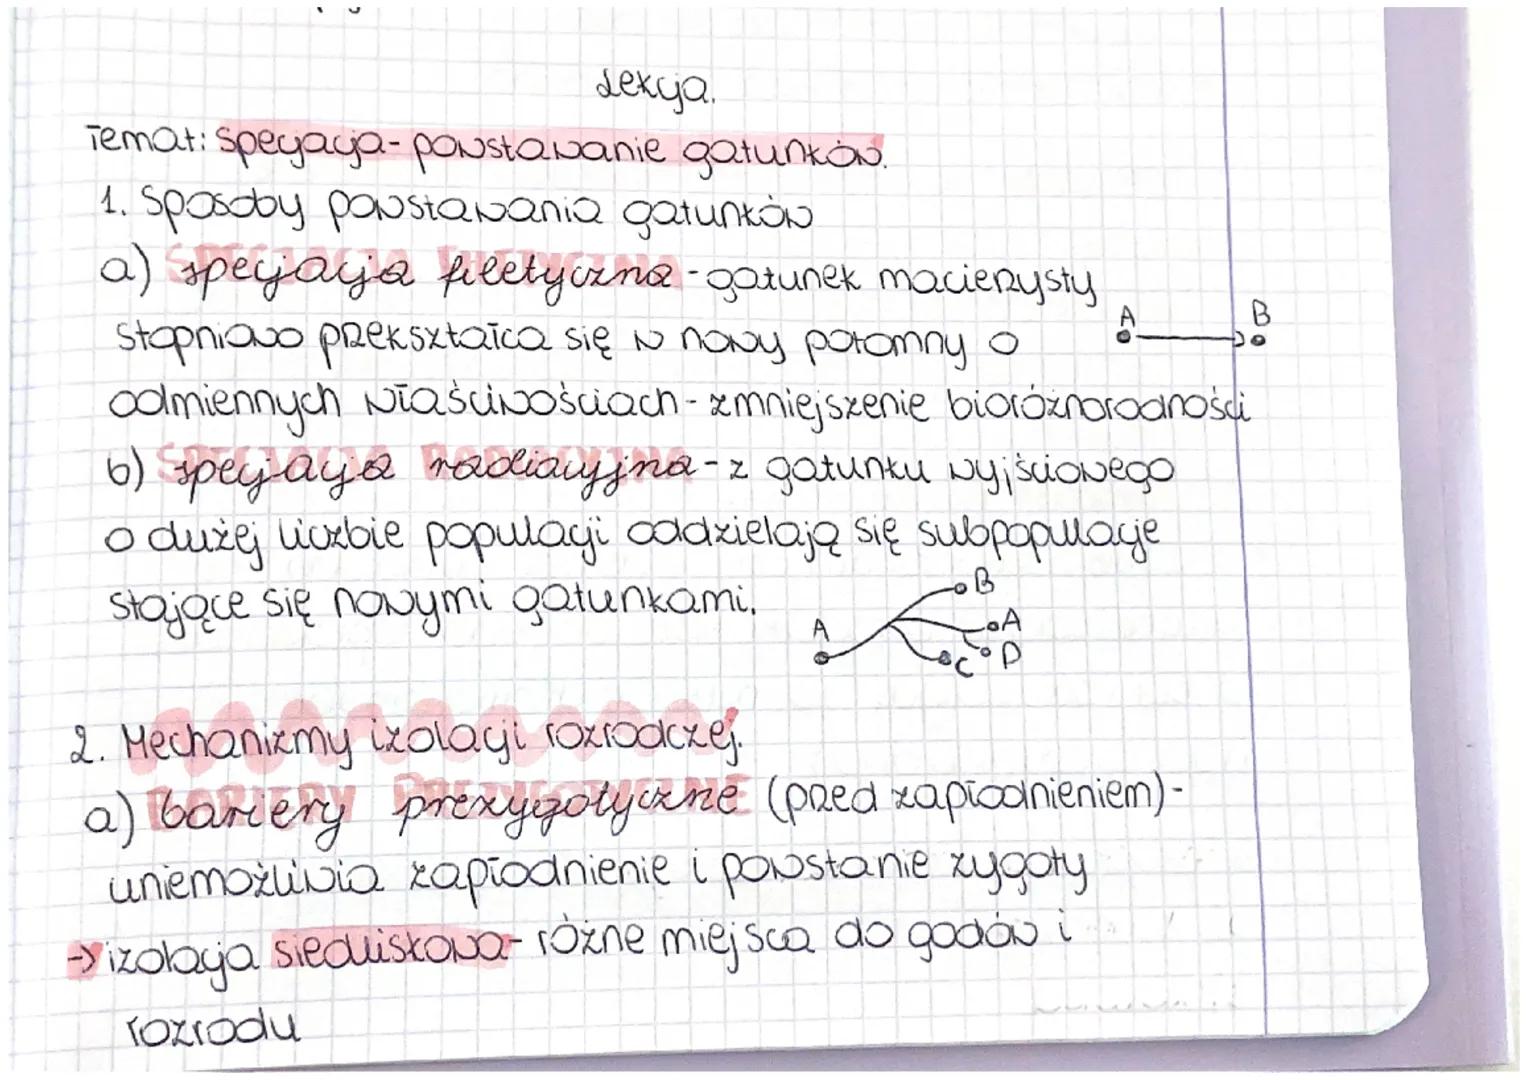 Lekcja.
Temat: Specjacja - powstawanie gatunków.
1. Sposoby powstawania gatunków
a) specjacja filetyczna - gatunek macierzysty
A B
stopniowo przekształca się w nowy potomny o
odmiennych właściwościach - zmniejszenie bioróżnorodności
b) specjacja radiacyjna - z gatunku wyjściowego
o dużej liczbie populacji oddzielają się subpopulacje
stające się nowymi gatunkami.
B
A A
C D
2. Mechanizmy izolacji rozrodczej.
a) bariery prezygotyczne (przed zapłodnieniem) -
uniemożliwia zapłodnienie i powstanie zygoty
→ izolacja siedliskowa - różne miejsca do godów i
rozrodu